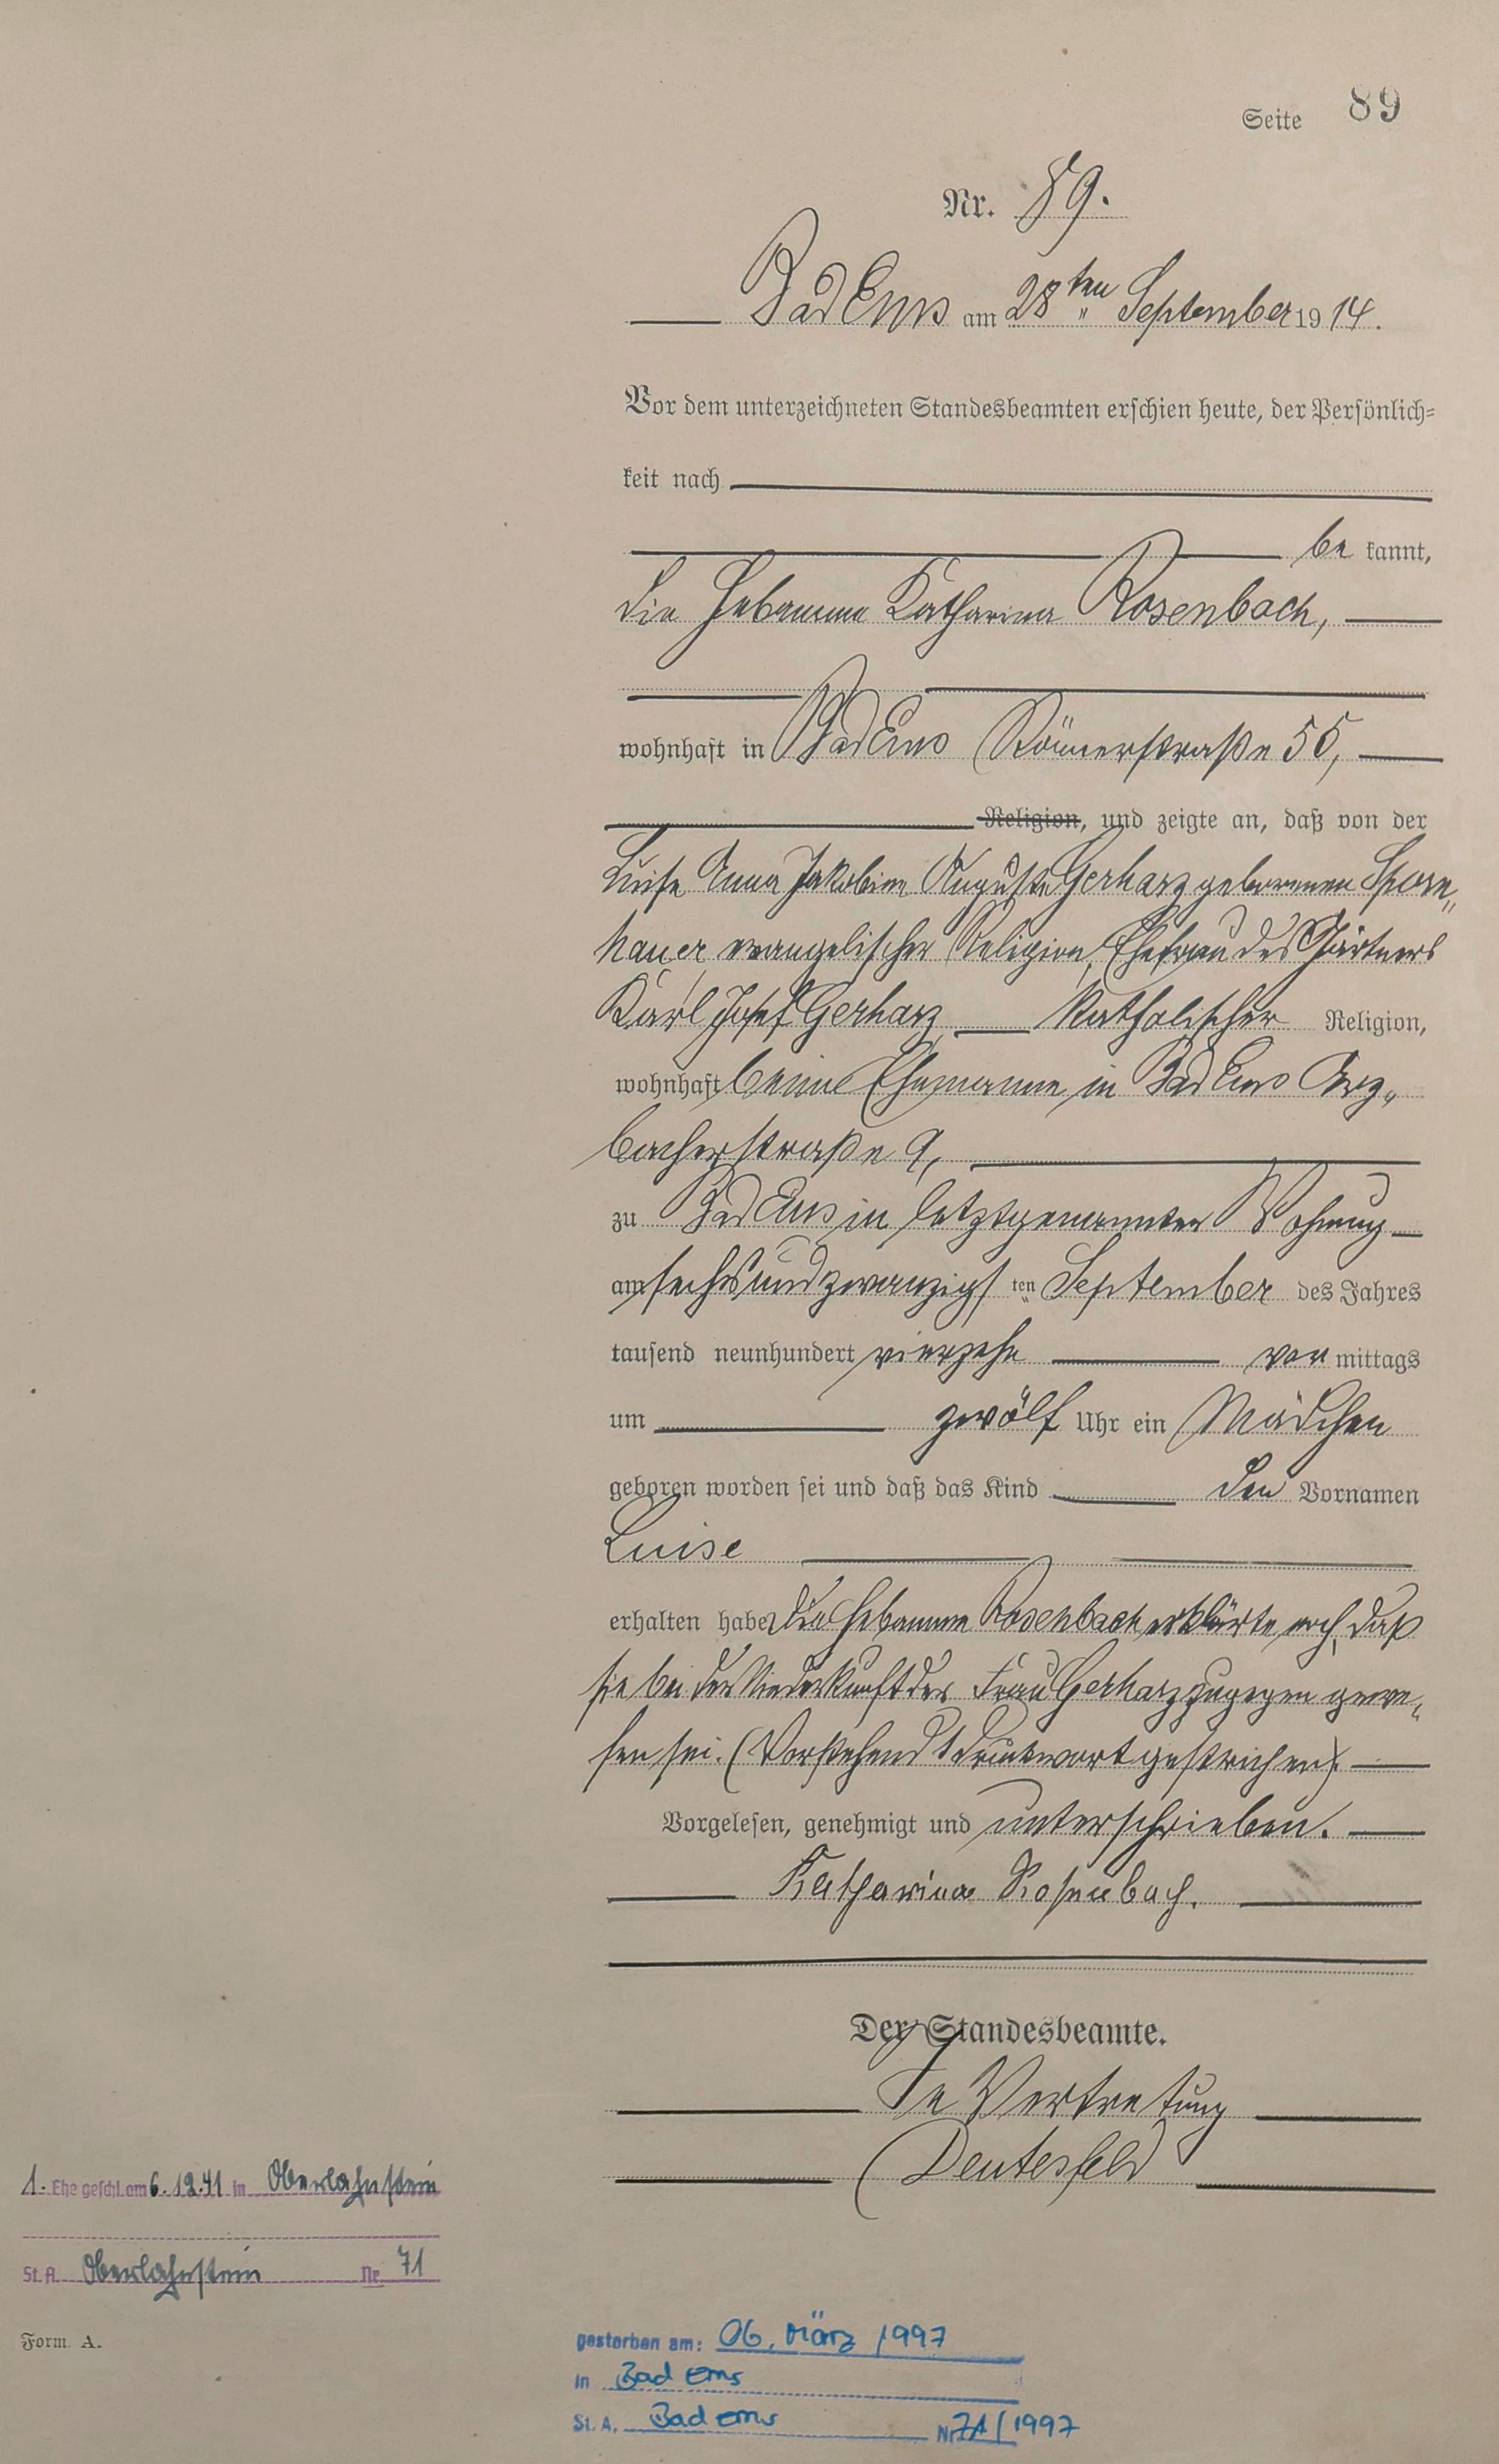 Seite 89
Nr. 89.
Bad Ems am 28ten September 1914.
Vor dem unterzeichneten Standesbeamten erschien heute, der Persönlich=
keit nach
be kannt,
die Hebamme Katharina Rosenbach,
wohnhaft in Bad Ems Römerstraße 55,
Religion, und zeigte an, daß von der
Luise Anna Jakobine Auguste Gerharz geborenen Sporn„
hauer, evangelischer Religion, Ehefrau des Gärtners
Karl Josef Gerharz katholischer Religion,
wohnhaft beim Ehemanne in Bad Ems Arz„
bacherstraße 9,
zu Bad Ems in letztgenannter Wohnung
am sechsundzwanzigs ten September des Jahres
tausend neunhundert vierzehn vor mittags
um zwölf Uhr ein Mädchen
geboren worden sei und daß das Kind den Vornamen
Luise
erhalten habe. Die Hebamme Rosenbach erklärte noch, daß
sie bei der Niederkunft der Frau Gerharz zugegen gewe„
sen sei. (Vorstehend 1 Druckwort gestrichen).
Vorgelesen, genehmigt und unterschrieben.
Katharina Rosenbach.
Der Standesbeamte.
In Vertretung
Deutesfeld
1. Ehe geschl. am 6.12.41 in Oberlahnstein
St. A. Oberlahnstein Nr. 71
Form. A.
gestorben am: 06. März 1997
in Bad Ems
St. A. Bad Ems Nr. 71/1997